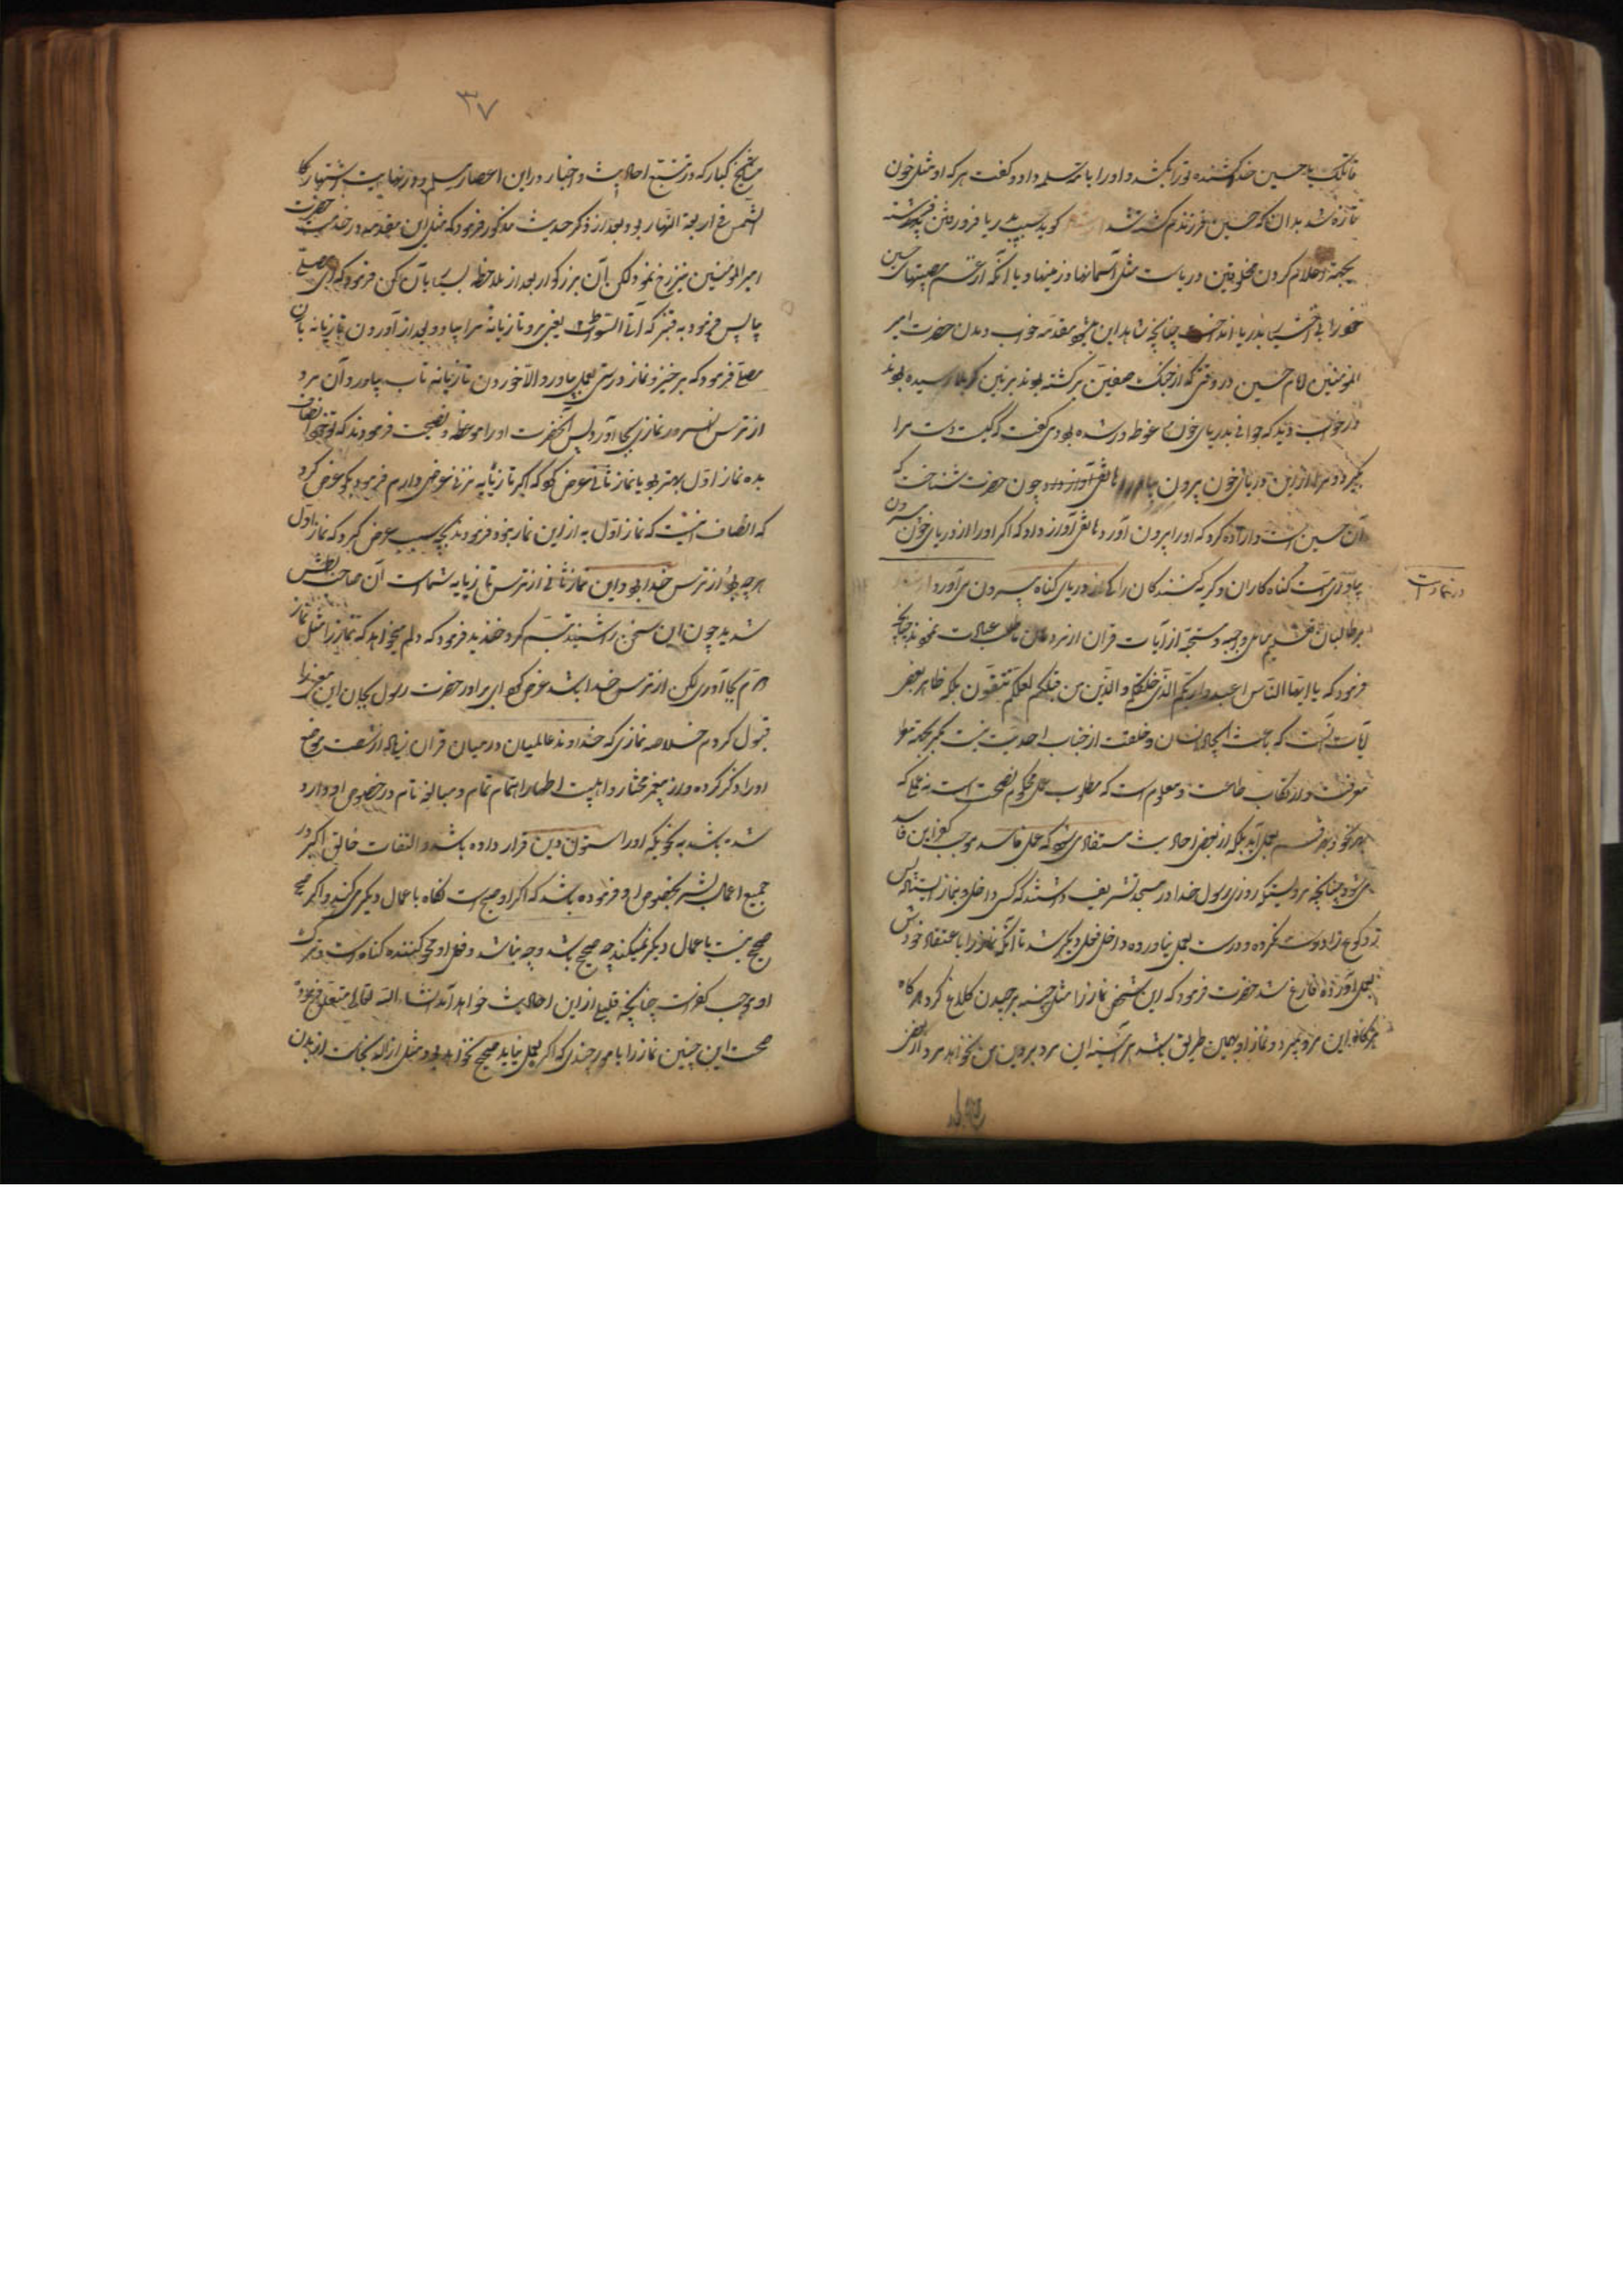 قاتلک یا حسین خدا کشنده تو را بکشد و او را بام سلمه داد و گفت هرکه او مثل خون
تازه شد بدان که حسین فرزندم کشته شد گوید سبب بدریا فرو رفتن فرشته
بجهة اعلام کردن مخلوقین دریاست مثل آسمانها و زمینها و یا آنکه از عظم مصیبتهای حسین
خود را بدریا انداخت چنانچه شاهد این مقدمه خواب دیدن حضرت امیر
المؤمنین امام حسین در وقتی که از جنگ صفین برگشته بودند بزمین کربلا رسیده بودند
در خواب دید که جوانی بدریای خون غوطه ور شده بودی گفت که کیست دست مرا
بگیرد و مرا از این دریای خون بیرون بیاورد هاتفی آواز داد چون حضرت شناخت که
آن حسین است و اراده کرد که او را بیرون آورد هاتفی آواز داد که اگر او را از دریای خون بیرون
بیاوری امت گناه کاران و گریه کنندگان را که از دریای گناه بیرون می آورد
در نماز است
بر طالبان مسایل واجبه و مستحبه از آیات قران ازبر عبادت نموده چنانچه
فرمود که یا ایها الناس اعبدوا ربکم الذی خلقکم و الذین من قبلکم لعلکم تتقون بلکه ظاهر بعض
آیات آنست که باعث ایجاد انسان و خلقت از جناب احدیت نیست مگر بجهة
معرفت و ارتکاب طاعت و معلوم است که مطلوب عمل محکوم بصحت است نه عملی که
بهر نحو و بهر قسم بعمل آید بلکه از بعض احادیث مستفاد می شود که عمل فاسد موجب کفر این فاسد
می شود چنانچه مرویست که روزی رسول خدا در مسجد تشریف داشتند که کسی داخل و بنماز ایستاد پس
رکوع را درست نکرده و درست بعمل نیاورده داخل فعل دیگر شد تا آنکه نماز را باعتقاد خودش
بعمل آورده فارغ شد حضرت فرمود که این شخص نماز را مثل چینه برچیدن کلاغ کرد هرگاه
هرگاه این مرد بمیرد و نماز او بهمین طریق باشد هر آینه این مرد بر دین من نخواهد مرد از بعض
۳۷
مشایخ کبار که در تتبع احادیث و اخبار در این اعصار مسلم و در نهایت اشتهار کا
الشمس فی اربعة النهار بود بعد از ذکر حدیث مذکور فرمود که مثل این مقدمه در خدمت حضرت
امیر المؤمنین نیز رخ نمود لکن آن بزرکوار بعد از ملاحظه بسیار بآن کن فرمود که ای مصلی
پس فرمود به قنبر که آت السوط یعنی برو تازیانه مرا بیاور و بعد از آوردن تازیانه بآن
مصلی فرمود که برخیز و نماز درستی بعمل بیاور و الا خوردن تازیانه تاب بیاور و آن مرد
از ترس آن سرور نمازی بجا آورد پس آنحضرت او را موعظه و نصیحت فرمودند که تو خود انصاف
بده نماز اول بهتر بود یا نماز ثانی عرض کرد که اگر تازیانه نزنی عرضی دارم فرمود بگو عرض کرد
که انصاف اینست که نماز اول به از این نماز بود فرمودند بچه سبب عرض کرد که نماز اول
هرچه بود از ترس خدا بود و این نماز ثانی از ترس تازیانه شماست آن صاحب بطش
شدید چون این سخن را شنید تبسم کرد و خندید فرمود که دلم میخواهد که نماز را مثل نماز
دویم بجا آوری لکن از ترس خدا باشد عرض کرد ای برادر حضرت رسول بجان این معنی را
قبول کردم خلاصه نمازی که خداوند عالمیان در میان قران زیاده از شصت موضع
او را ذکر کرده و از پیغمبر مختار و اهلبیت اطهار اهتمام تمام و مبالغه تام در خصوص او وارد
شده باشد به نحویکه او را ستون دین قرار داده باشد و التفات خالق اکبر در
جمیع اعمال بشر بخصوص او فرموده باشد که اگر او صحیح است نگاه باعمال دیگر می کند و اگر
صحیح نیست باعمال دیگر نمیکند چه صحیح باشد و چه نباشد و فعل او محو کننده گناه است و ترک
او موجب کفر است چنانچه قلیلی از این احادیث خواهد آمد انشاء الله تعالی متعلق فرمود
صحت این چنین نماز را بامور چندی که اگر بعمل نیاید صحیح نخواهد بود مثل ازاله نجاست از بدن